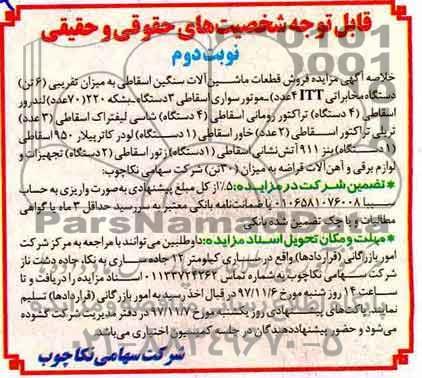 قابل توجه شخصیت‌های حقوقی و حقیقی
نوبت دوم
خلاصه آگهی مزایده فروش قطعات ماشین آلات سنگین اسقاطی به میزان تقریبی (۶ تن)
دستگاه مخابراتی ITT (۴عدد)ـ موتور سواری اسقاطی ۳دستگاه ـ بشکه ۲۲۰(۷۰عدد) لندرور
اسقاطی (۴ دستگاه) تراکتور رومانی اسقاطی (۴ دستگاه) شاسی لیفتراک اسقاطی (۲ عدد)
تریلی تراکتور اسقاطی (۲ عدد) خاور اسقاطی (۱ دستگاه) لودر کاترپیلار ۹۵۰ اسقاطی
(۱ دستگاه) بنز ۹۱۱ آتش‌نشانی اسقاطی (۱ دستگاه) ژتور اسقاطی (۲ دستگاه) تجهیزات و
لوازم برقی و آهن آلات قراضه به میزان (۳۰ تن) شرکت سهامی نکاچوب:
* تضمین شرکت در مزایده: ۵٪ از کل مبلغ پیشنهادی به صورت واریزی به حساب
سیبا ۰۱۰۶۵۸۱۰۷۶۰۰۸ یا ضمانت‌نامه بانکی معتبر با سررسید حداقل ۳ ماه یا گواهی
مطالبات و یا چک تضمین شده بانکی
* مهلت و مکان تحویل اسناد مزایده: داوطلبین می‌توانند با مراجعه به مرکز شرکت
امور بازرگانی (قراردادها) واقع در ساری کیلومتر ۱۲ جاده ساری به نکا، جاده دشت ناز
شرکت سهامی نکاچوب به شماره تماس ۰۱۱۳۳۷۲۴۲۶۳ اسناد مزایده را دریافت و تا
ساعت ۱۴ روز شنبه مورخ ۹۷/۱۱/۶ در قبال اخذ رسید به امور بازرگانی (قراردادها) تسلیم
نمایند. پاکت‌های پیشنهادی روز یکشنبه مورخ ۹۷/۱۱/۷ در دفتر مدیریت شرکت گشوده
می‌شود و حضور پیشنهاددهندگان در جلسه کمیسیون اختیاری می‌باشد.
شرکت سهامی نکاچوب
ParsNamadData
۰۲۱-۸۸۳۴۹۶۷۰-۵